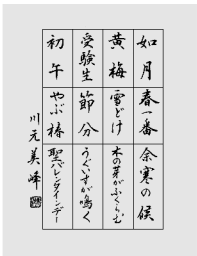 如月
春一番
余寒の候
黄梅
雪どけ
木の芽がふくらむ
受験生
節分
うぐいすが鳴く
初午
やぶ椿
聖バレンタインデー
川元美峰